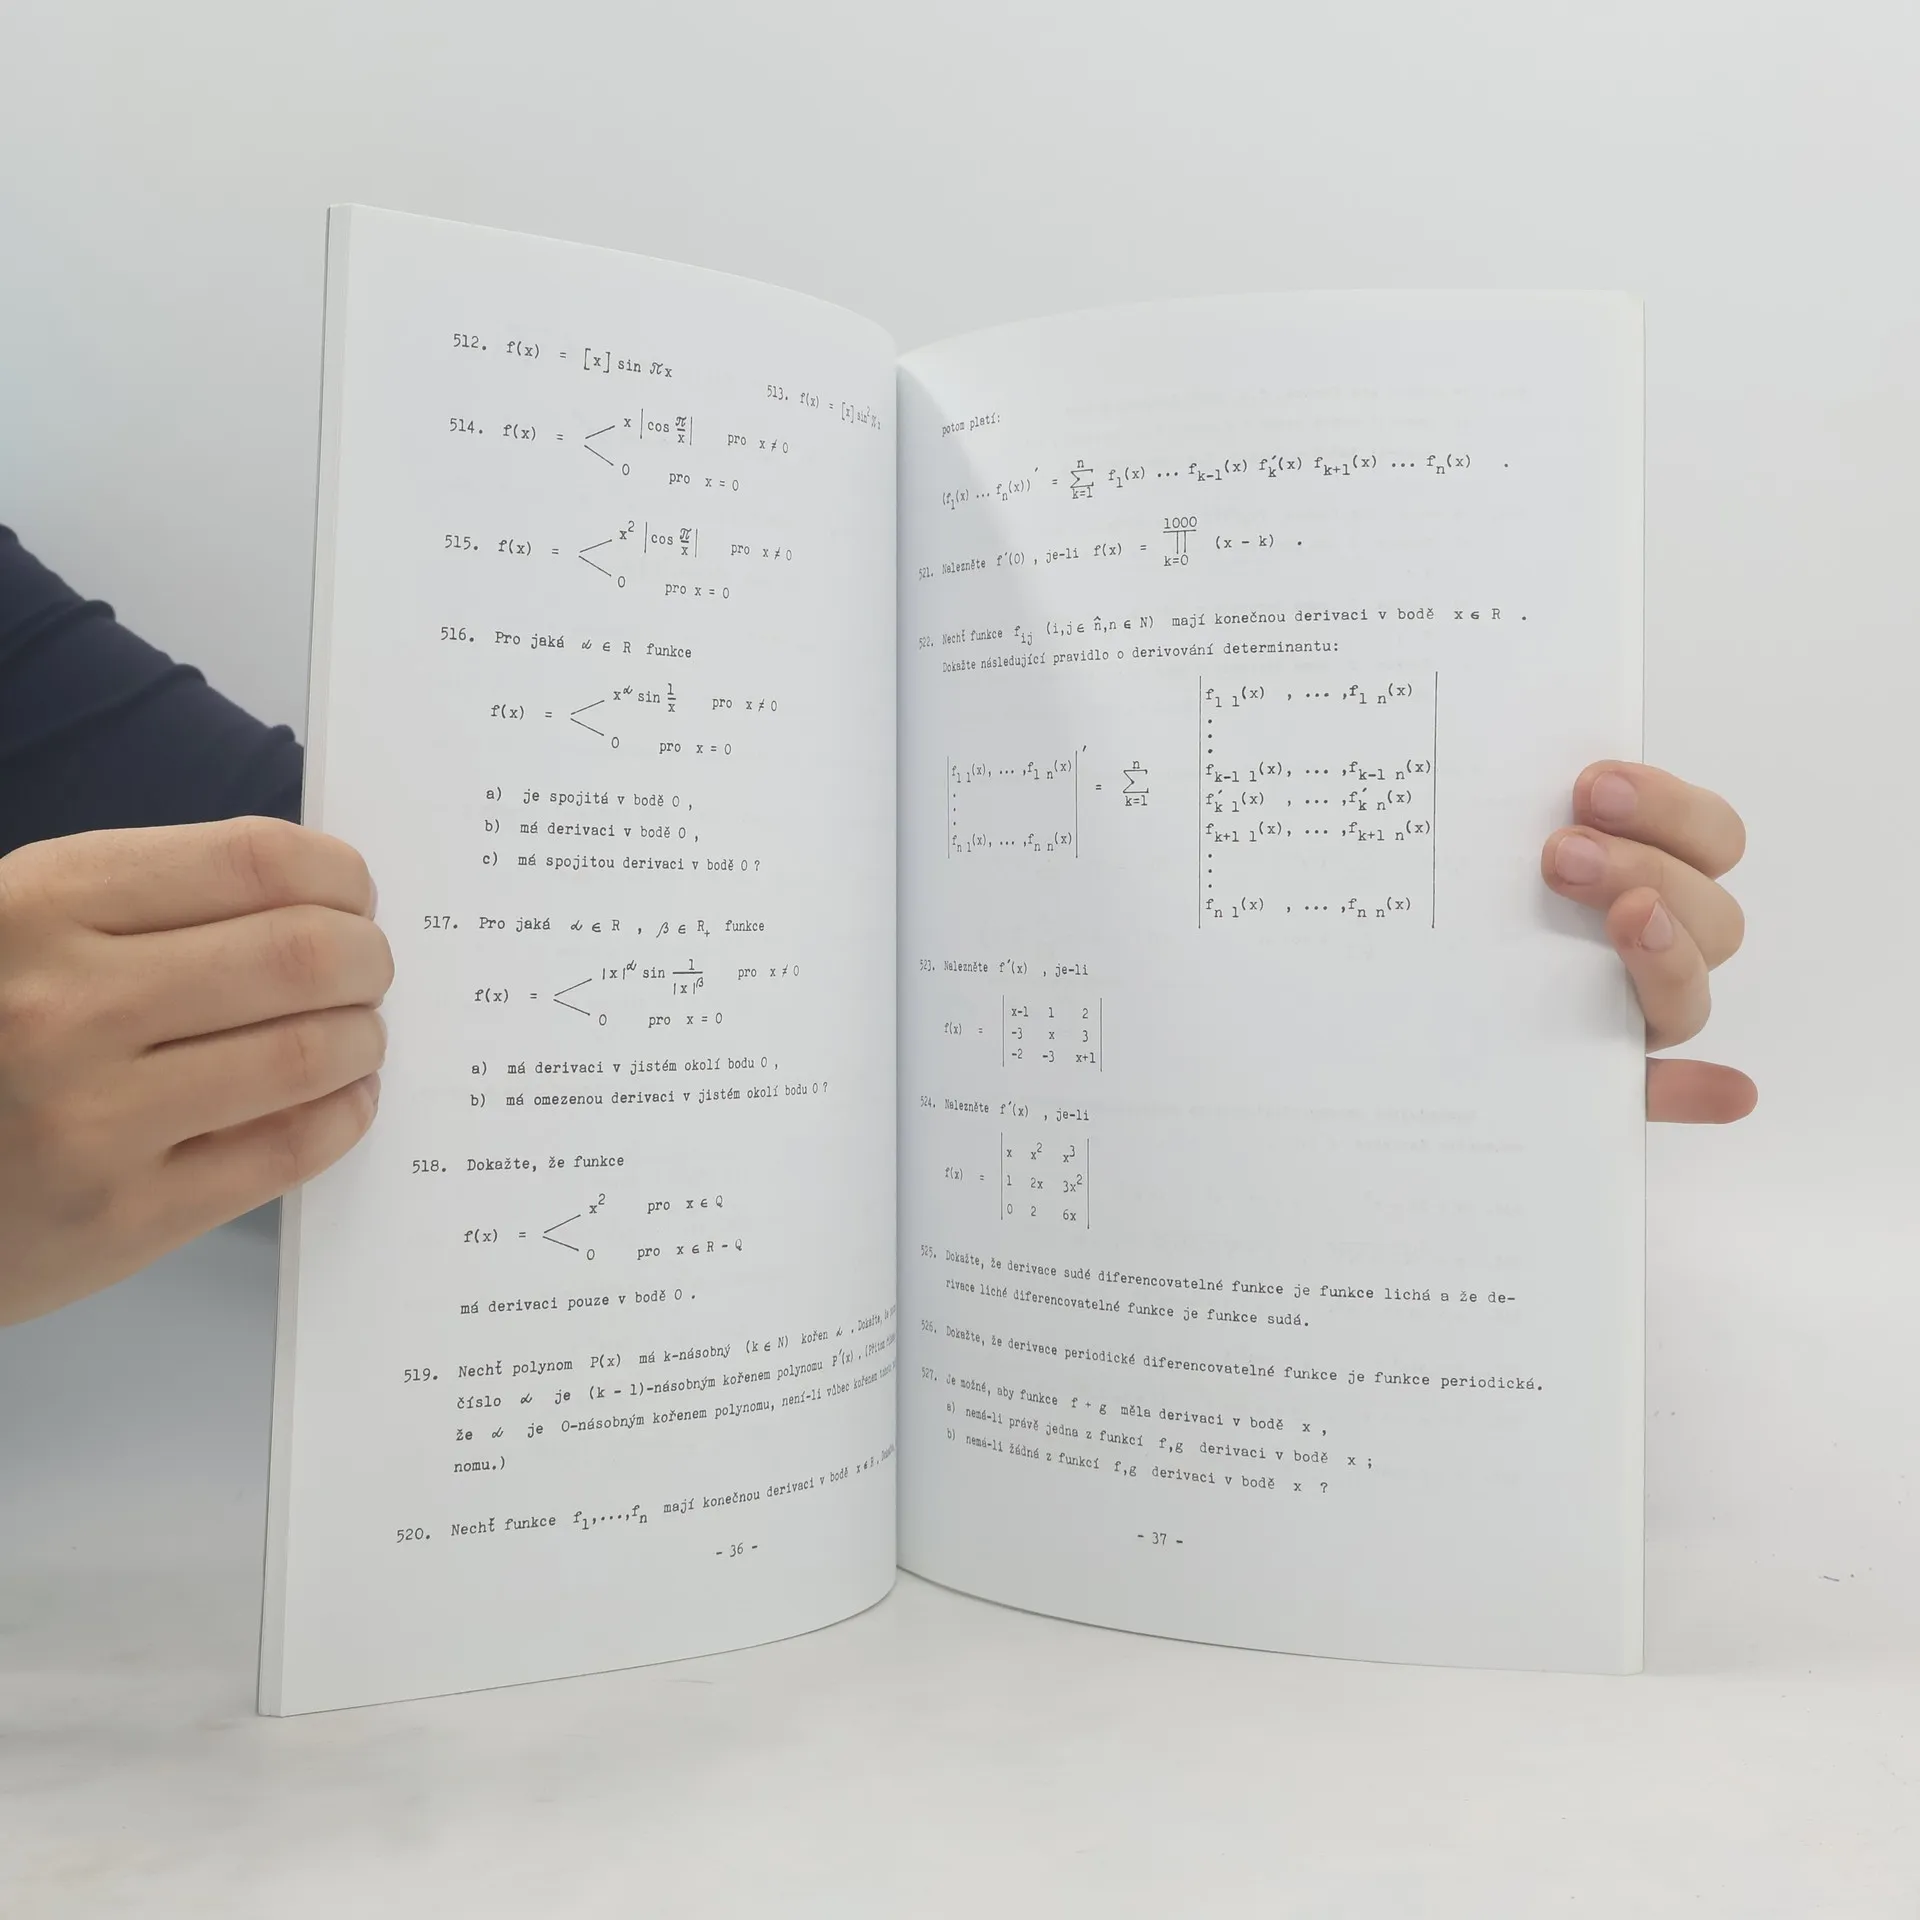 512. f(x) = [x] sin πx
513. f(x) = [x] sin² πx
514. f(x) = x |cos π/x| pro x ≠ 0
0 pro x = 0
515. f(x) = x² |cos π/x| pro x ≠ 0
0 pro x = 0
516. Pro jaká α ∈ R funkce
f(x) = x^α sin 1/x pro x ≠ 0
0 pro x = 0
a) je spojitá v bodě 0 ,
b) má derivaci v bodě 0 ,
c) má spojitou derivaci v bodě 0 ?
517. Pro jaká α ∈ R , β ∈ R₊ funkce
f(x) = |x|^α sin 1/|x|^β pro x ≠ 0
0 pro x = 0
a) má derivaci v jistém okolí bodu 0 ,
b) má omezenou derivaci v jistém okolí bodu 0 ?
518. Dokažte, že funkce
f(x) = x² pro x ∈ Q
0 pro x ∈ R - Q
má derivaci pouze v bodě 0 .
519. Nechť polynom P(x) má k-násobný (k ∈ N) kořen α . Dokažte, že
číslo α je (k - 1)-násobným kořenem polynomu P′(x) . (Přitom
že α je 0-násobným kořenem polynomu, není-li vůbec kořenem
nomu.)
520. Nechť funkce f₁,...,fₙ mají konečnou derivaci v bodě x ∈ R .
- 36 -
potom platí:
(f₁(x) ... fₙ(x))′ = ∑ₖ₌₁ⁿ f₁(x) ... fₖ₋₁(x) fₖ′(x) fₖ₊₁(x) ... fₙ(x) .
521. Nalezněte f′(0) , je-li f(x) = ∏ₖ₌₀¹⁰⁰⁰ (x - k) .
522. Nechť funkce f_ij (i,j ∈ n̂,n ∈ N) mají konečnou derivaci v bodě x ∈ R .
Dokažte následující pravidlo o derivování determinantu:
|f_1 1(x), ... ,f_1 n(x)
.
.
.
.
f_n 1(x), ... ,f_n n(x)|′ = ∑ₖ₌₁ⁿ
|f_1 1(x) , ... ,f_1 n(x)
.
.
.
f_k-1 1(x), ... ,f_k-1 n(x)
f′_k 1(x) , ... ,f′_k n(x)
f_k+1 1(x), ... ,f_k+1 n(x)
.
.
.
f_n 1(x) , ... ,f_n n(x)|
523. Nalezněte f′(x) , je-li
x-1 1 2
f(x) = -3 x 3
-2 -3 x+1
524. Nalezněte f′(x) , je-li
x x² x³
f(x) = 1 2x 3x²
0 2 6x
525. Dokažte, že derivace sudé diferencovatelné funkce je funkce lichá a že de-
rivace liché diferencovatelné funkce je funkce sudá.
526. Dokažte, že derivace periodické diferencovatelné funkce je funkce periodická.
527. Je možné, aby funkce f + g měla derivaci v bodě x ,
a) nemá-li právě jedna z funkcí f,g derivaci v bodě x ;
b) nemá-li žádná z funkcí f,g derivaci v bodě x ?
- 37 -